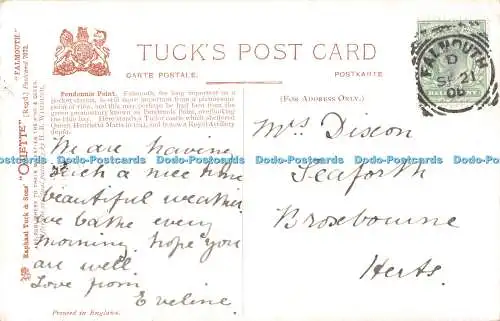 TUCK'S POST CARD
CARTE POSTALE.
POSTKARTE.
(FOR ADDRESS ONLY.)
Pendennis Point. Falmouth, the long important as a
pocket station, is still more important from a picturesque
point of view, and this may perhaps be best had from the
green promontory known as Pendennis Point, overlooking
a fair bay. Here stands a Tudor castle which sheltered
Queen Henrietta Maria in 1644, and is now a Royal Artillery
depôt.
We are having
such a nice time
beautiful weather
we bathe every
morning. hope you
are well.
Love from
Eveline.
Printed in England.
Mrs Dixon
Seaforth
Broxbourne
Herts.
FALMOUTH
D
SP 21
HALFPENNY
Raphael Tuck & Sons' "OILETTE" [Regd.] Postcard
"FALMOUTH."
Dodo-Postcards Dodo-Postcards Dodo-Postcards Dodo-Postcards